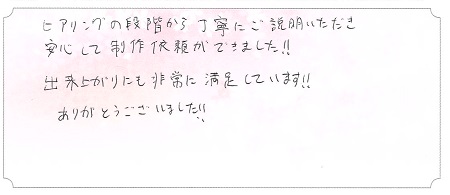 ヒアリングの段階から丁寧にご説明いただき
安心して制作依頼ができました!!
出来上がりにも非常に満足しています!!
ありがとうございました!!